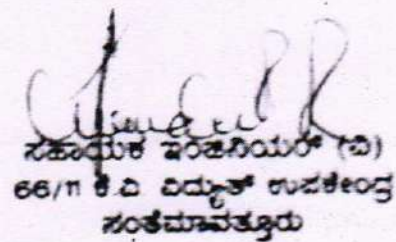 ಸಹಾಯಕ ಇಂಜಿನಿಯರ್ (ವಿ)
66/11 ಕೆ.ವಿ ವಿದ್ಯುತ್ ಉಪಕೇಂದ್ರ
ಸಂತೆಮಾವತ್ತೂರು